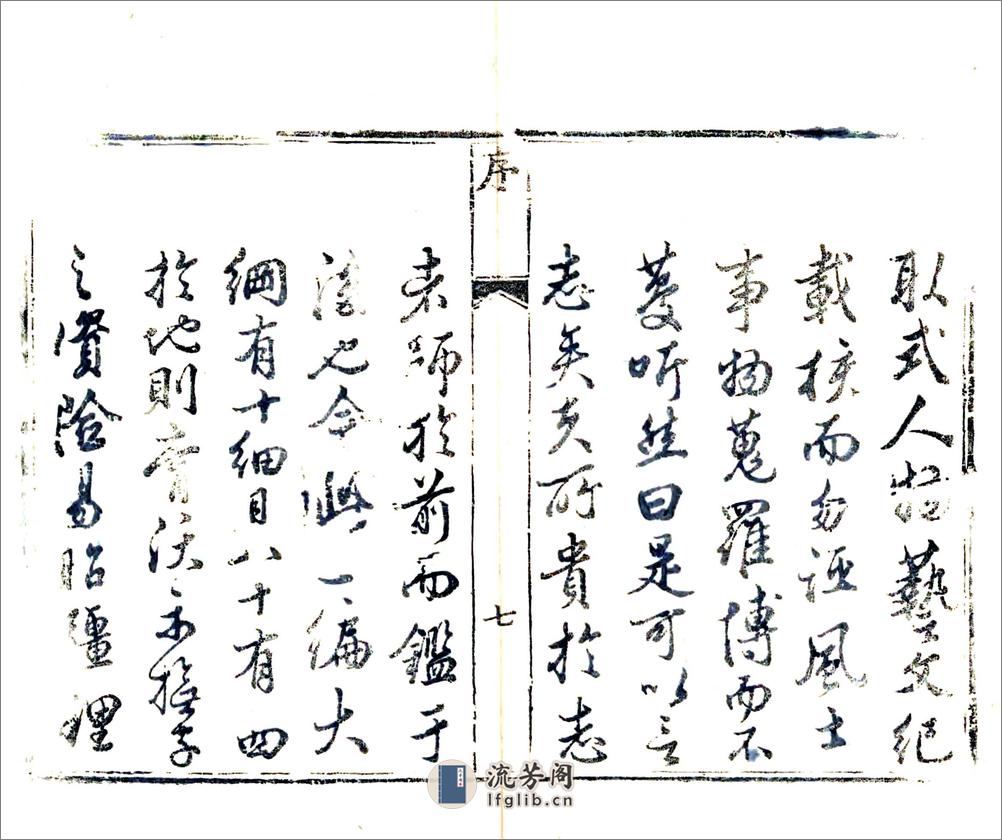 取式人物藝文紀
載核而勿誣風土
事物蒐羅博而不
蔓听然曰是可以言
志矣夫所貴於志
序
七
者師於前而鑑于
後也今此一編大
綱有十細目八十有四
於地則膏沃
之實險易昭疆理
流芳阁
lfglib.cn